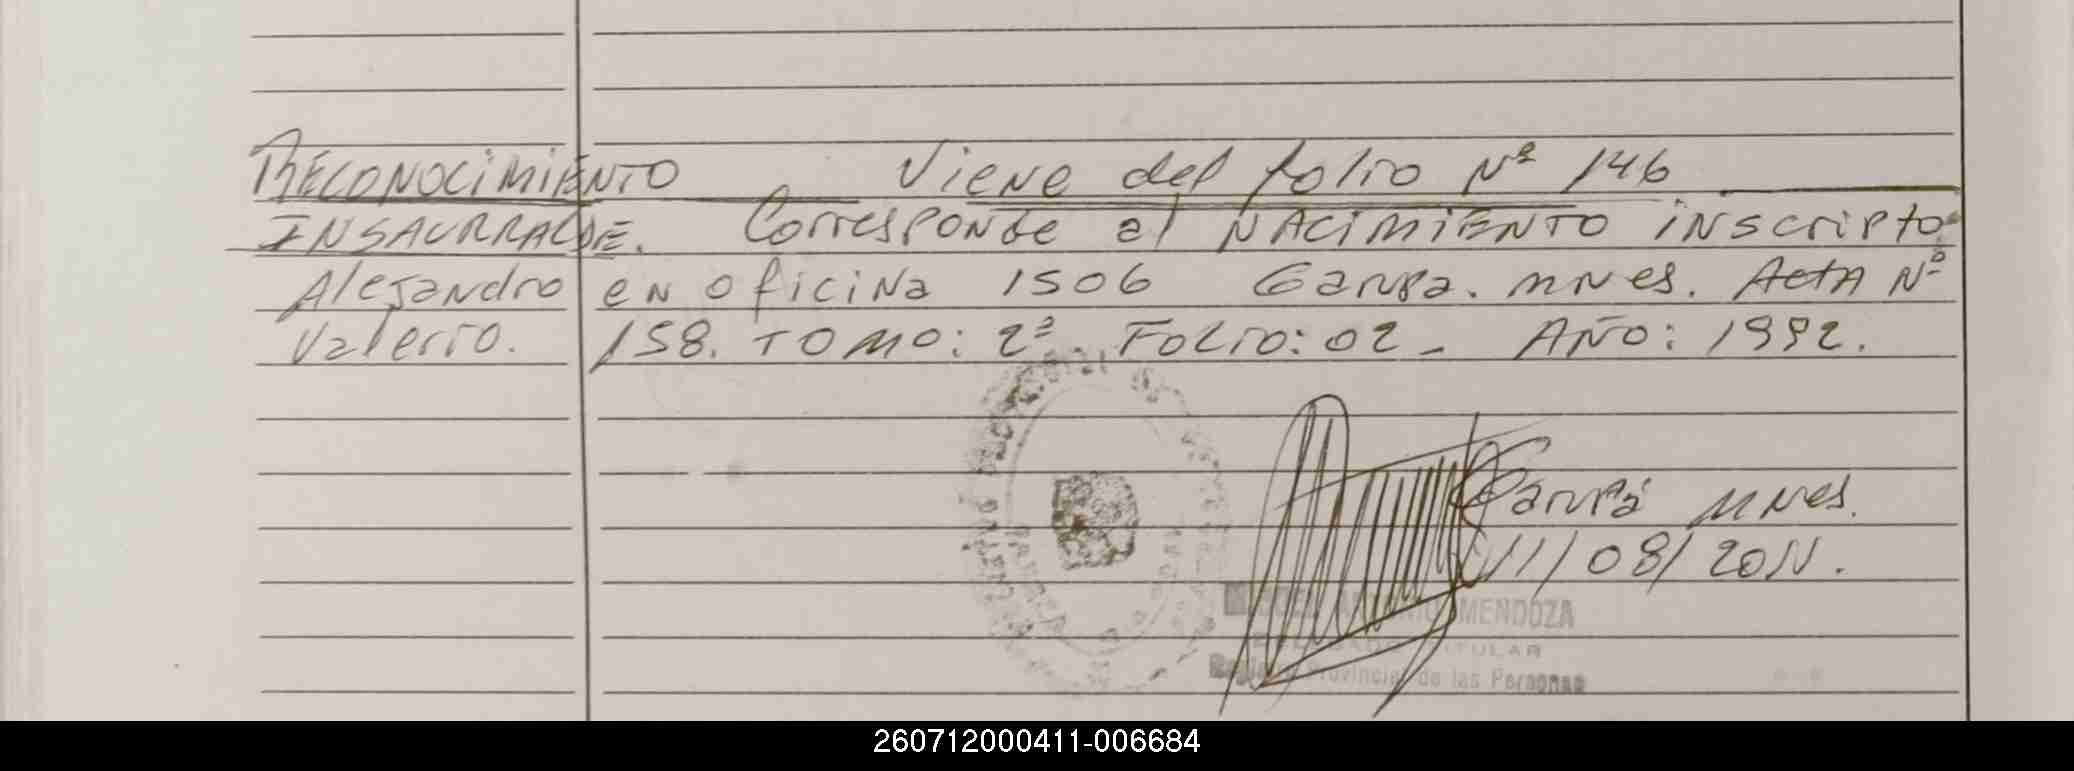 RECONOCIMIENTO Viene del folio Nº 146
INSAURRALDE. Corresponde al NACIMIENTO inscripto
Alejandro en oficina 1506 Garupa. mnes. Acta Nº
Valerio. 158. TOMO: 2º. FOLIO: 02 - AÑO: 1992.
Garupá mnes.
11/08/2011.
MENDOZA
TITULAR
Provincial de las Personas
260712000411-006684